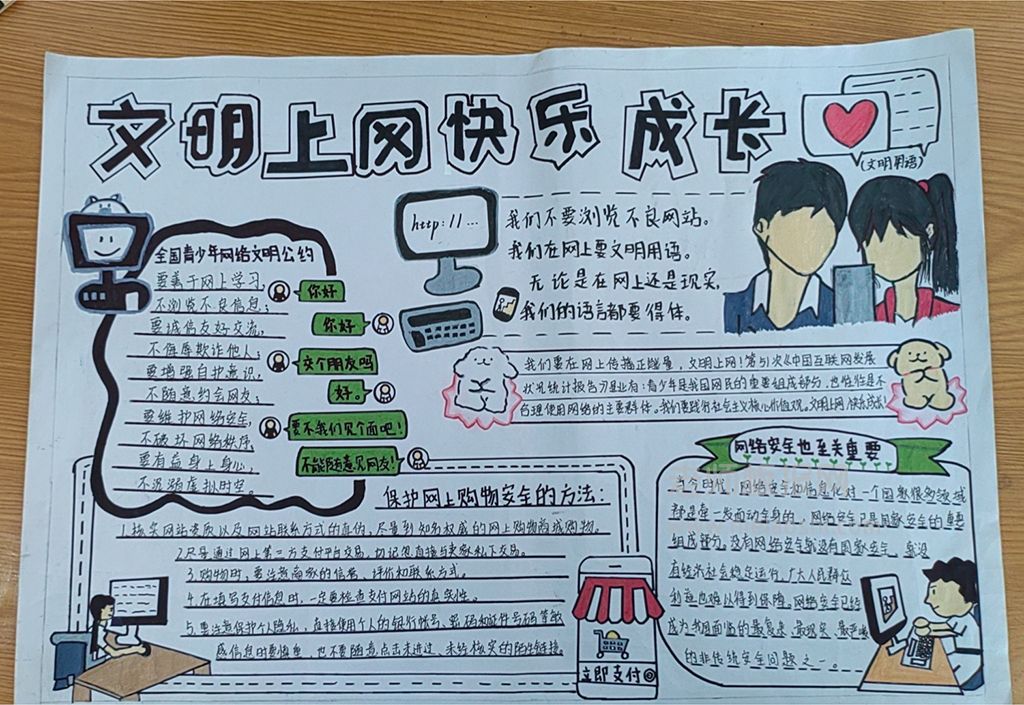 文明上网快乐成长
(文明用语)
http://...
我们不要浏览不良网站。
我们在网上要文明用语。
无论是在网上还是现实,
我们的语言都要得体。
全国青少年网络文明公约
要善于网上学习,
不浏览不良信息;
要诚信友好交流,
不侮辱欺诈他人;
要增强自护意识,
不随意约会网友;
要维护网络安全,
不破坏网络秩序,
要有益身上身心,
不沉溺虚拟时空。
你好
你好
交个朋友吗
好。
要不我们见个面吧!
不能随意见网友!
我们要在网上传播正能量,文明上网!第51次《中国互联网发展
状况统计报告》
青少年是我国网民的重要组成部分,也
理使用网络的主要群体。我们要践行社会主义核心价值观。文明上网,快乐成长!
保护网上购物安全的方法:
1.核实网站资质以及网站联系方式的真伪,尽量到知名权威的网上购物商城购物。
2.尽量通过网上第三方支付平台交易,切记忌直接与卖家私下交易。
3.购物时,要注意商家的信誉、评价和联系方式。
4.在填写支付信息时,一定要检查支付网站的真实性。
5.要注意保护个人隐私,直接使用个人的银行帐号、密码和证件号码等敏
感信息时要慎重,也不要随意点击未进过、未经核实的陌生链接。
立即支付
网络安全也至关重要
当今时代,网络安全和信息化对一个国家很多领域
都是牵一发而动全身的,网络安全已是国家安全的重要
组成部分。没有网络安全就没有国家安全,就没
有经济社会稳定运行,广大人民群众
利益也难以得到保障。网络安全已经
成为我国面临的最复杂、最现实、最严峻
的非传统安全问题之一。